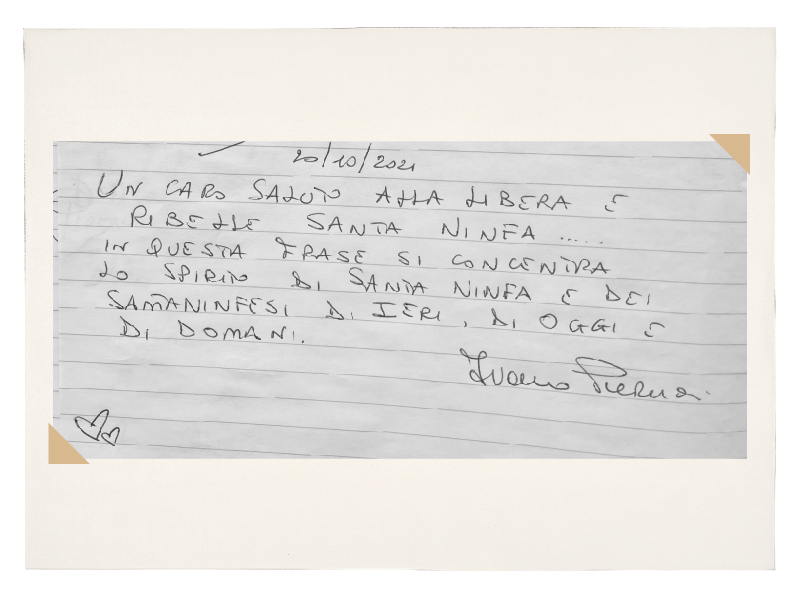 20/10/2021
UN CARO SALUTO ALLA LIBERA E
RIBELLE SANTA NINFA .....
IN QUESTA FRASE SI CONCENTRA
LO SPIRITO DI SANTA NINFA E DEI
SAMANINFESI DI IERI, DI OGGI E
DI DOMANI.